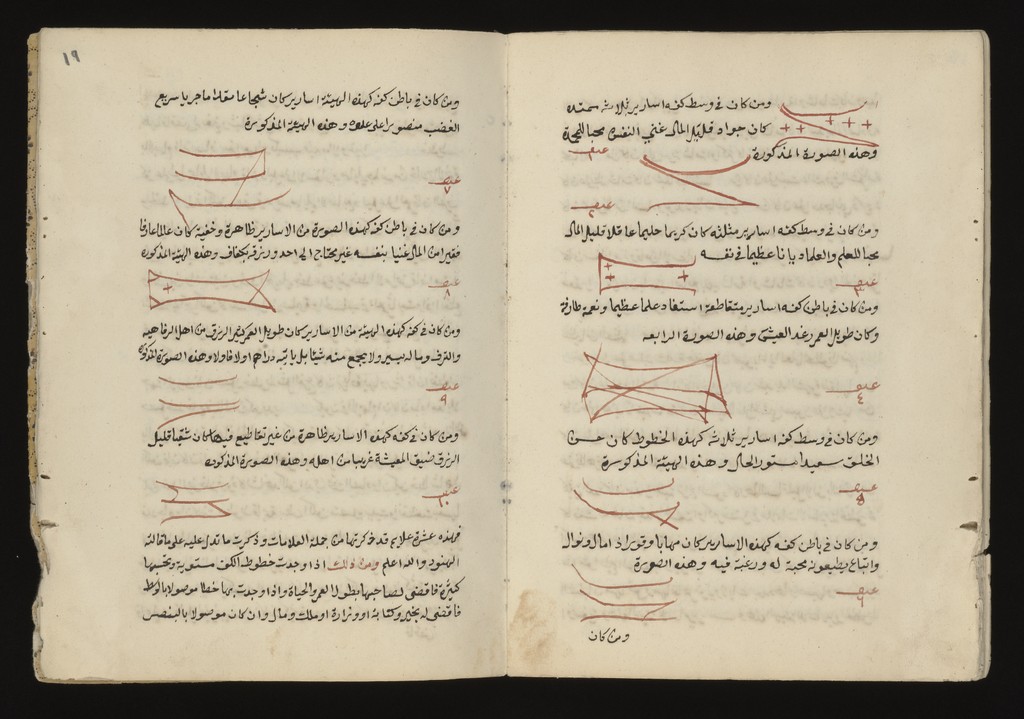 ومن كان في وسط كفه اسارير ثلاثة ممتده
كان جوادا قليل المال غني النفس محبا للمجة
وهذه الصورة المذكورة
ومن كان في وسط كفه اسارير مثلثه كان كريما حليما عاقلا قليل المال
محبا للعلم والعلما دينا عظيما في نفسه
ومن كان في باطن كفه اسارير متقاطعة استفاد علما عظيما ونعمة طارفة
وكان طويل العمر رغد العيش وهذه الصورة الرابعه
٤
ومن كان في وسط كفه اسارير ثلاثه كهذه الخطوط كان حسن
الخلق سعيدا مستور الحال وهذه الهيئة المذكورة
٥
ومن كان في باطن كفه كهذه الاسارير كان مهابا وقورا ذا مال ونوال
واتباع يطيعونه محبة له ورغبة فيه وهذه الصورة
٦
ومن كان
١٩
ومن كان في باطن كفه كهذه الهيئة اسارير كان شجاعا مقداما جريا سريع
الغضب منصورا على عدوه وهذه الهيئة المذكورة
٧
ومن كان في باطن كفه كهذه الصورة من الاسارير ظاهرة وخفية كان عالما عارفا
فقيرا من المال غنيا بنفسه غير محتاج الى احد ورزقه بكفاف وهذه الهيئة المذكوره
٨
ومن كان في كفه كهذه الهيئة من الاسارير كان طويل العمر كثير الرزق من اهل الرفاهيه
والترف وماله يسير ولا يجمع منه شيئا بل ياتيه دراهم اولا فاولا وهذه الصورة المذكوره
٩
ومن كان في كفه كهذه الاسارير ظاهرة من غير تقاطيع فيها كان شقيا قليل
الرزق ضيق المعيشة غريبا من اهله وهذه الصورة المذكوره
١٠
فهذه عشرة علايم قد ذكرتها من جملة العلامات وذكرت ما تدل عليه على ما قالته
الهنود والله اعلم ومن ذلك اذا وجدت خطوط الكف مستوية وتحسبها
كثيرة فاقضي لصاحبها بطول العمر والحياة واذا وجدت بها خطا موصولا بالوسطا
فاقضي له بخير وكتابة او وزارة او ملك ومال وان كان موصولا بالبنصر